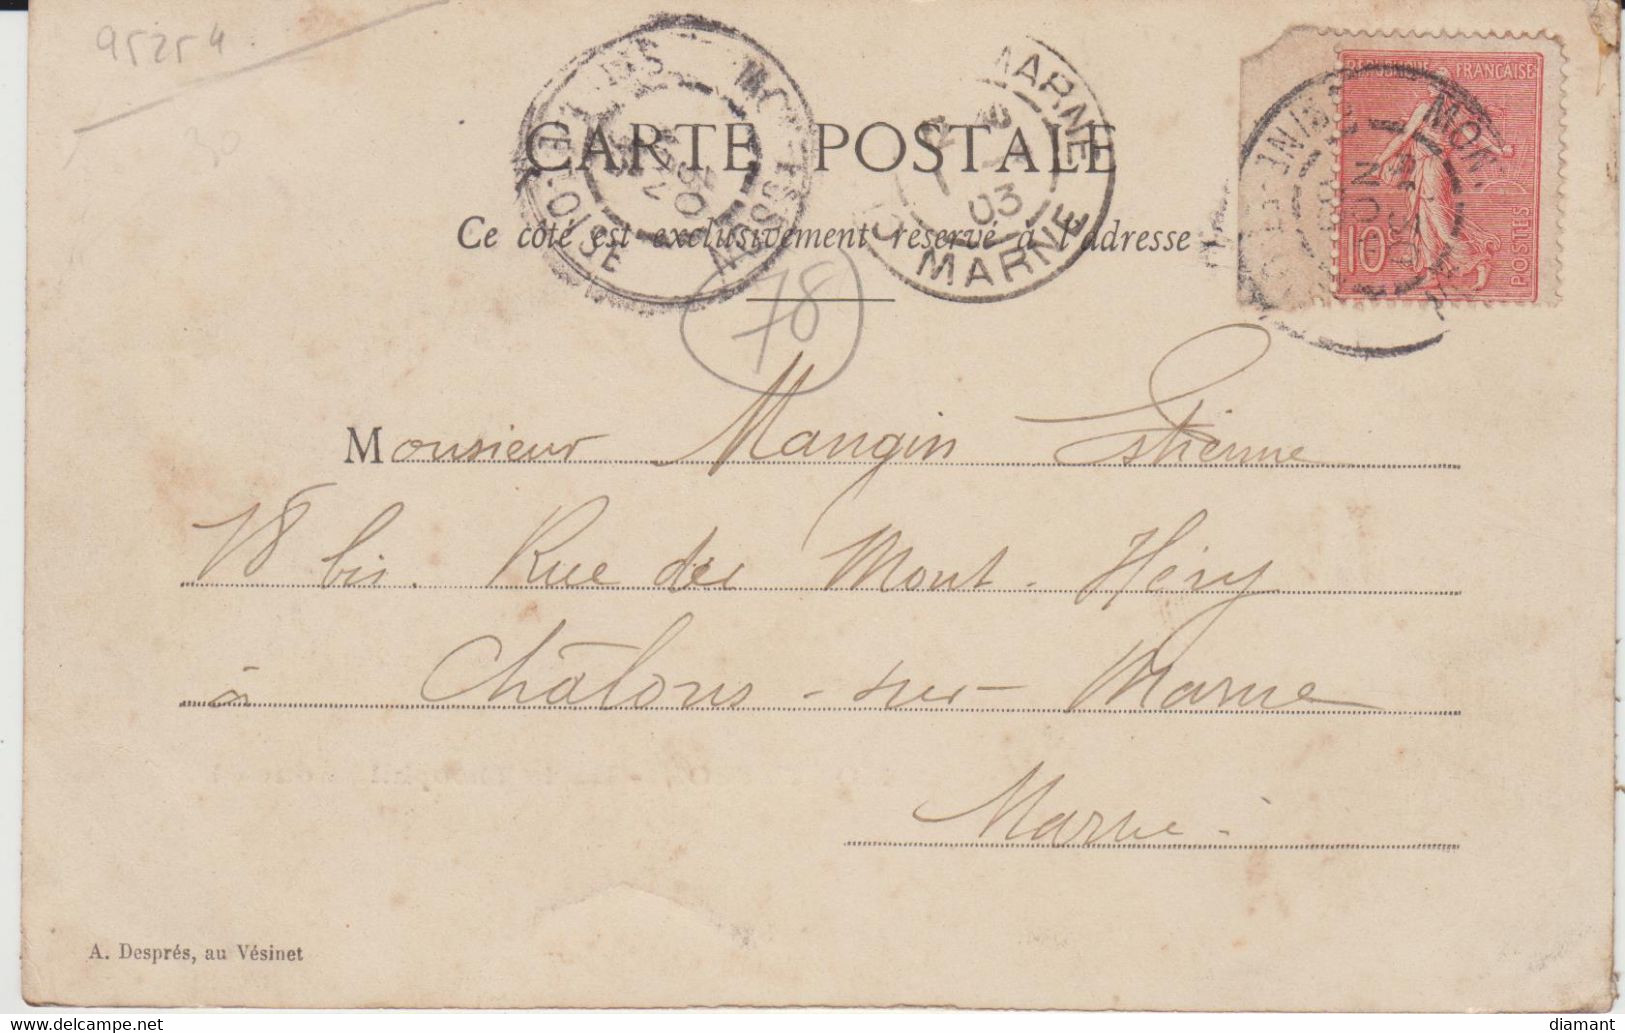 95254
30
CARTE POSTALE
Ce côté est exclusivement réservé à l'adresse
MARNE
03
MARNE
OISE
RÉPUBLIQUE FRANÇAISE
10
POSTES
78
Monsieur Mangin Etienne
18 bis. Rue du Mont-Héry
à Châlons-sur-Marne
Marne.
A. Després, au Vésinet
delcampe.net
diamant